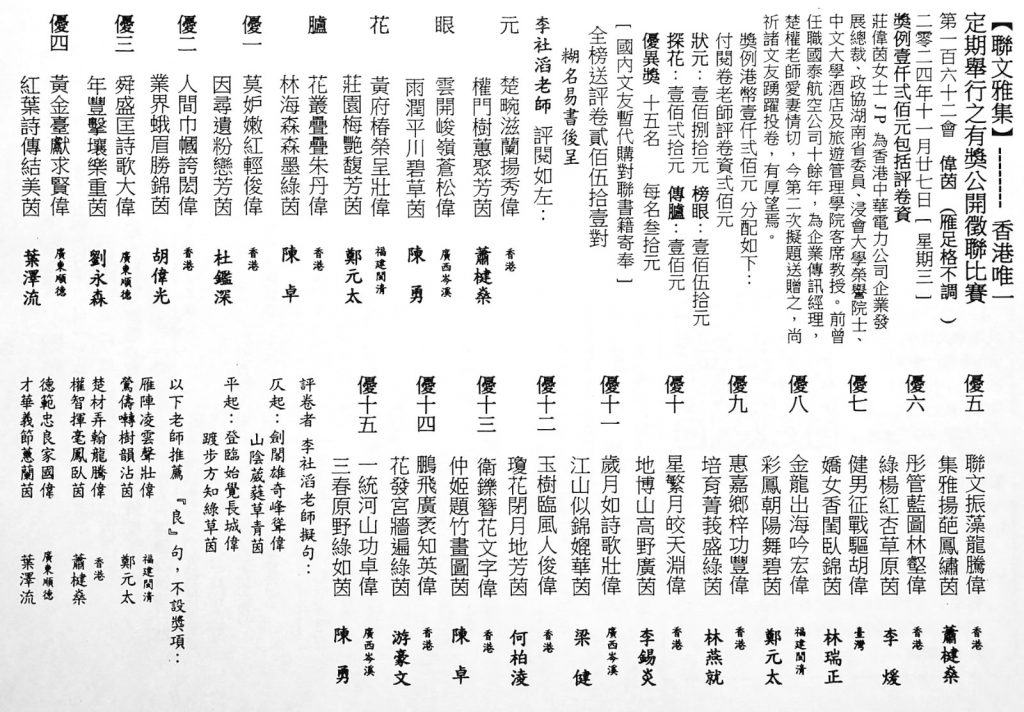 【聯文雅集】┅┅┅ 香港唯一
定期舉行之有獎公開徵聯比賽
第一百六十二會 偉茵 （雁足格不調 ）
二零二四年十一月廿七日［星期三］
獎例壹仟弍佰元包括評卷資
莊偉茵女士JP 為香港中華電力公司企業發
展總裁、政協湖南省委員、浸會大學榮譽院士、
中文大學酒店及旅遊管理學院客席教授。前曾
任職國泰航空公司十餘年，為企業傳訊經理，
楚權老師愛妻情切，今第二次擬題送贈之，尚
祈諸文友踴躍投卷，有厚望焉。
獎例港幣壹仟弍佰元 分配如下：
付閱卷老師評卷資弍佰元
狀元：壹佰捌拾元 榜眼：壹佰伍拾元
探花：壹佰弍拾元 傳臚：壹佰元
優異獎 十五名 每名叁拾元
［國內文友暫代購對聯書籍寄奉］
全榜送評卷貳佰伍拾壹對
糊名易書後呈
李社滔老師 評閱如左：
元 楚畹滋蘭揚秀偉 香港
權門樹蕙聚芳茵 蕭楗燊
眼 雲開峻嶺蒼松偉 廣西岑溪
雨潤平川碧草茵 陳 勇
花 黃府椿榮呈壯偉 福建閩清
莊園梅艷馥芳茵 鄭元太
臚 花叢疊疊朱丹偉 香港
林海森森墨綠茵 陳 卓
優一 莫妒嫩紅輕俊偉 香港
因尋遺粉戀芳茵 杜鑑深
優二 人間巾幗誇閎偉 香港
業界蛾眉勝錦茵 胡偉光
優三 舜盛匡詩歌大偉 廣東順德
年豐擊壤樂重茵 劉永森
優四 黃金臺獻求賢偉 廣東順德
紅葉詩傳結美茵 葉澤流
優五 聯文振藻龍騰偉 香港
集雅揚葩鳳繡茵 蕭楗燊
優六 彤管藍圖林壑偉 香港
綠楊紅杏草原茵 李 煖
優七 健男征戰驅胡偉 臺灣
嬌女香閨臥錦茵 林瑞正
優八 金龍出海吟宏偉 福建閩清
彩鳳朝陽舞碧茵 鄭元太
優九 惠嘉鄉梓功豐偉 香港
培育菁莪盛綠茵 林燕就
優十 星繁月皎天淵偉 香港
地博山高野廣茵 李錫炎
優十一 歲月如詩歌壯偉 廣西岑溪
江山似錦媲華茵 梁 健
優十二 玉樹臨風人俊偉 香港
瓊花閉月地芳茵 何柏淩
優十三 衛鑠簪花文字偉 香港
仲姬題竹畫圖茵 陳 卓
優十四 鵬飛廣袤知英偉 香港
花發宮牆遍綠茵 游豪文
優十五 一統河山功卓偉 廣西岑溪
三春原野綠如茵 陳 勇
評卷者 李社滔老師擬句：
仄起：劍閣雄奇峰聳偉
山陰葳蕤草青茵
平起：登臨始覺長城偉
踱步方知綠草茵
以下老師推薦 『良』句，不設獎項：
雁陣凌雲聲壯偉 福建閩清
鶯儔囀樹韻沾茵 鄭元太
楚材弄翰龍騰偉 香港
權智揮毫鳳臥茵 蕭楗燊
德範忠良家國偉 廣東順德
才華義節蕙蘭茵 葉澤流